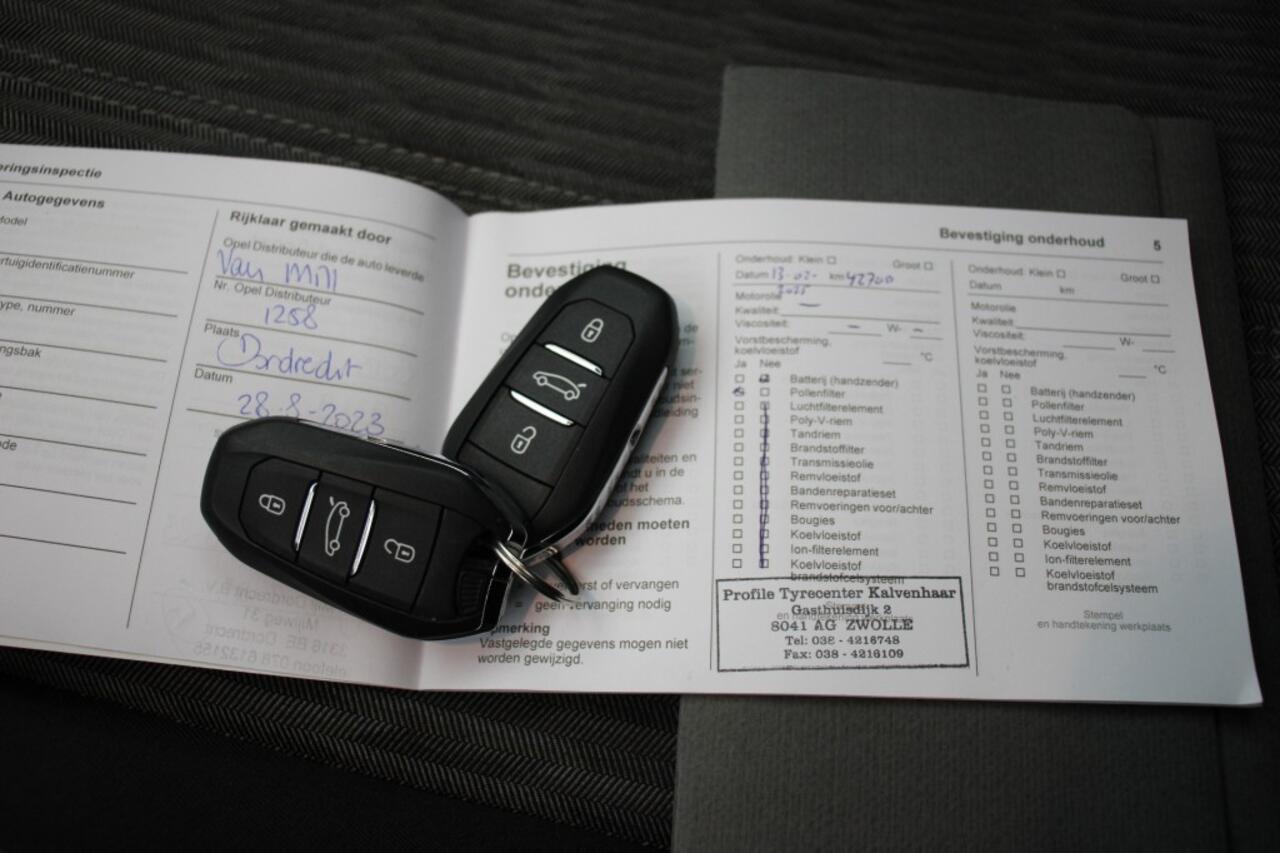 eringsinspectie
Autogegevens
Model
rtuigidentificatienummer
ype, nummer
ngsbak
de
Rijklaar gemaakt door
Opel Distributeur die de auto leverde
Van Mill
Nr. Opel Distributeur
1258
Plaats
Dordrecht
Datum
28-8-2023
Bevestiging
onde
aliteiten en
ndt u in de
of het
oudsschema.
heden moeten
worden
ververst of vervangen
= geen vervanging nodig
Opmerking
Vastgelegde gegevens mogen niet
worden gewijzigd.
Bevestiging onderhoud 5
Onderhoud: Klein ☐ Groot ☐
Datum 13-02- km 42700
2025
Motorolie
Kwaliteit:
Viscositeit: - W- -
Vorstbescherming,
koelvloeistof °C
Ja Nee
Batterij (handzender)
Pollenfilter
Luchtfilterelement
Poly-V-riem
Tandriem
Brandstoffilter
Transmissieolie
Remvloeistof
Bandenreparatieset
Remvoeringen voor/achter
Bougies
Koelvloeistof
Ion-filterelement
Koelvloeistof
brandstofcelsysteem
Stempel
en handtekening werkplaats
Profile Tyrecenter Kalvenhaar
Gasthuisdijk 2
8041 AG ZWOLLE
Tel: 038 - 4216748
Fax: 038 - 4216109
Onderhoud: Klein ☐ Groot ☐
Datum km
Motorolie
Kwaliteit:
Viscositeit: W-
Vorstbescherming,
koelvloeistof °C
Ja Nee
Batterij (handzender)
Pollenfilter
Luchtfilterelement
Poly-V-riem
Tandriem
Brandstoffilter
Transmissieolie
Remvloeistof
Bandenreparatieset
Remvoeringen voor/achter
Bougies
Koelvloeistof
Ion-filterelement
Koelvloeistof
brandstofcelsysteem
Stempel
en handtekening werkplaats